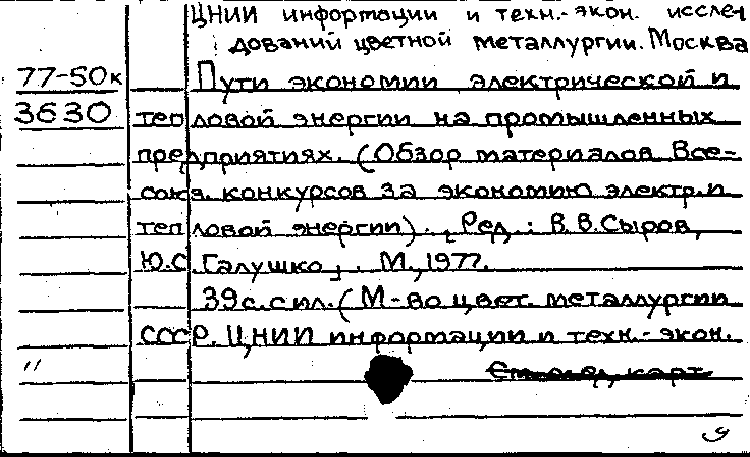 ЦНИИ информации и техн.-экон. исслед
дований цветной металлургии. Москва
77-50к Пути экономии электрической и
3630 тепловой энергии на промышленных
предприятиях. (Обзор материалов Все-
союз. конкурсов за экономию электр. и
тепловой энергии). [Ред.: В.В.Сыров,
Ю.С.Галушко]. М., 1977.
39 с. с ил. (М-во цвет. металлургии
СССР. ЦНИИ информации и техн.-экон.
См. след. карт.